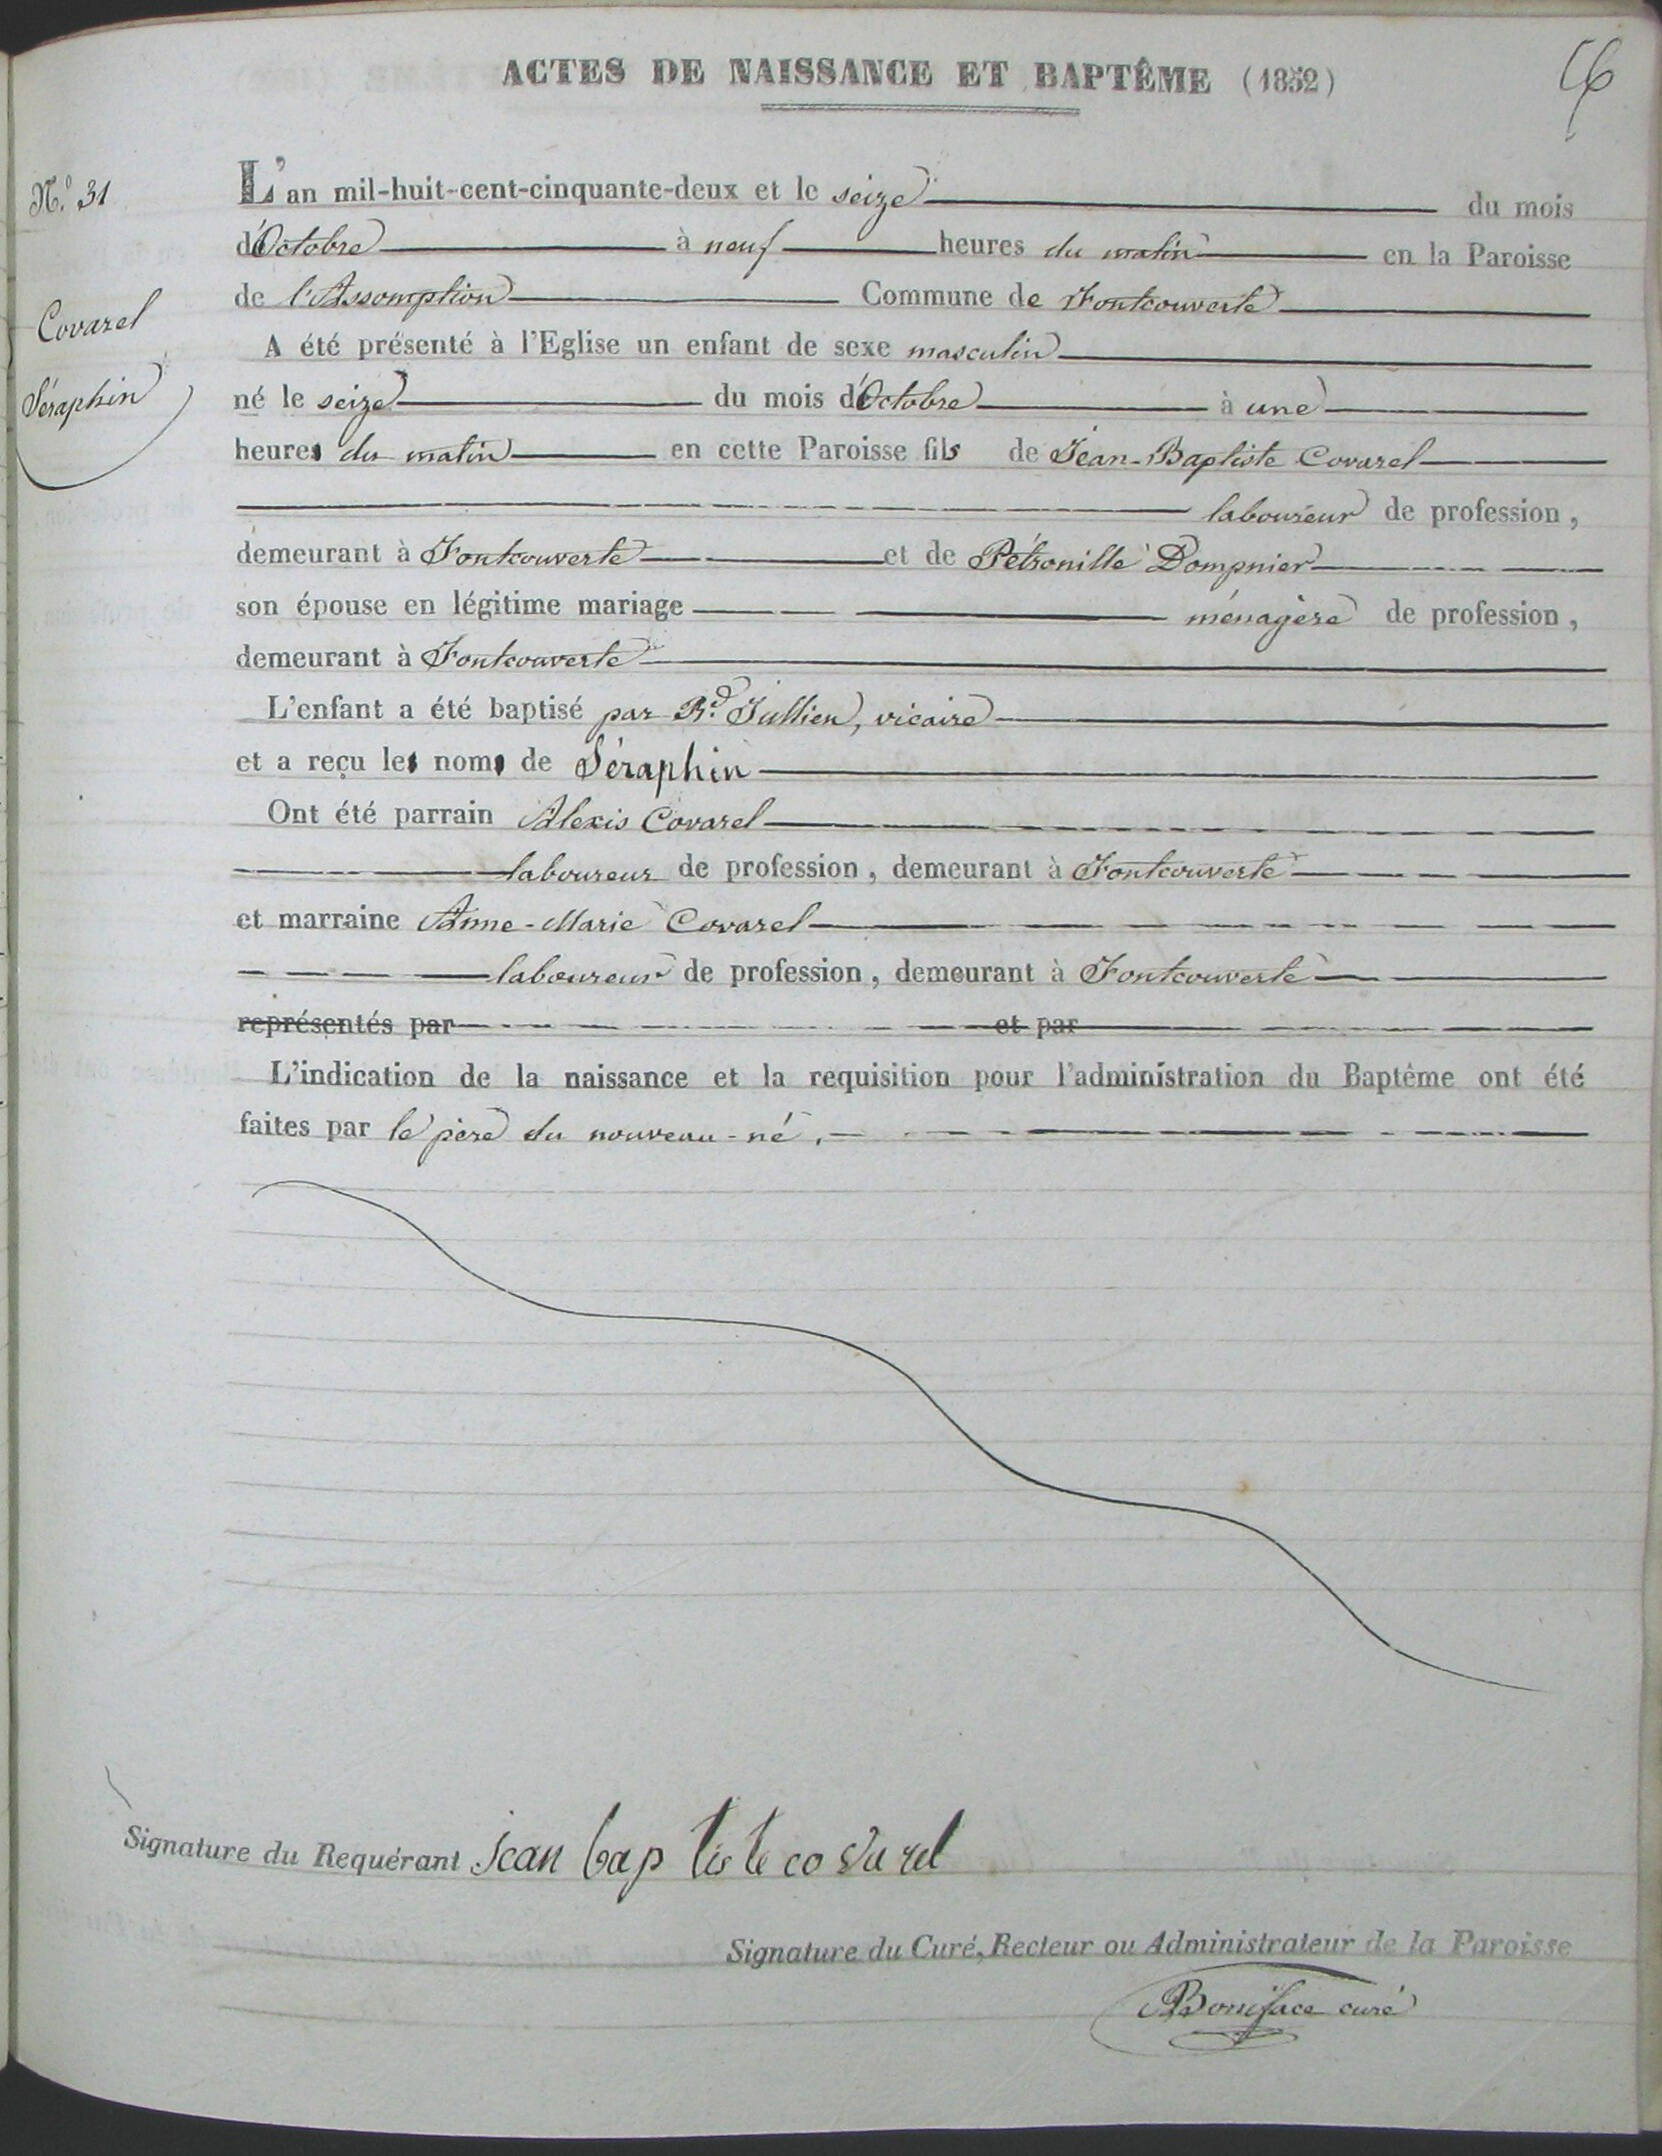 ACTES DE NAISSANCE ET BAPTÊME (1852)
N.o 31
Covarel
Séraphin
L'an mil-huit-cent-cinquante-deux et le seize du mois
d'Octobre à neuf heures du matin en la Paroisse
de l'Assomption Commune de Fontcouverte
A été présenté à l'Eglise un enfant de sexe masculin
né le seize du mois d'Octobre à une
heures du matin en cette Paroisse fils de Jean-Baptiste Covarel
laboureur de profession,
demeurant à Fontcouverte et de Pétronille Dompnier
son épouse en légitime mariage ménagère de profession,
demeurant à Fontcouverte
L'enfant a été baptisé par Rd. Jullien, vicaire
et a reçu les noms de Séraphin
Ont été parrain Alexis Covarel
laboureur de profession, demeurant à Fontcouverte
et marraine Anne-Marie Covarel
laboureur de profession, demeurant à Fontcouverte
représentés par et par
L'indication de la naissance et la requisition pour l'administration du Baptême ont été
faites par le père du nouveau-né.
Signature du Requérant jean baptiste covarel
Signature du Curé, Recteur ou Administrateur de la Paroisse
Boniface curé